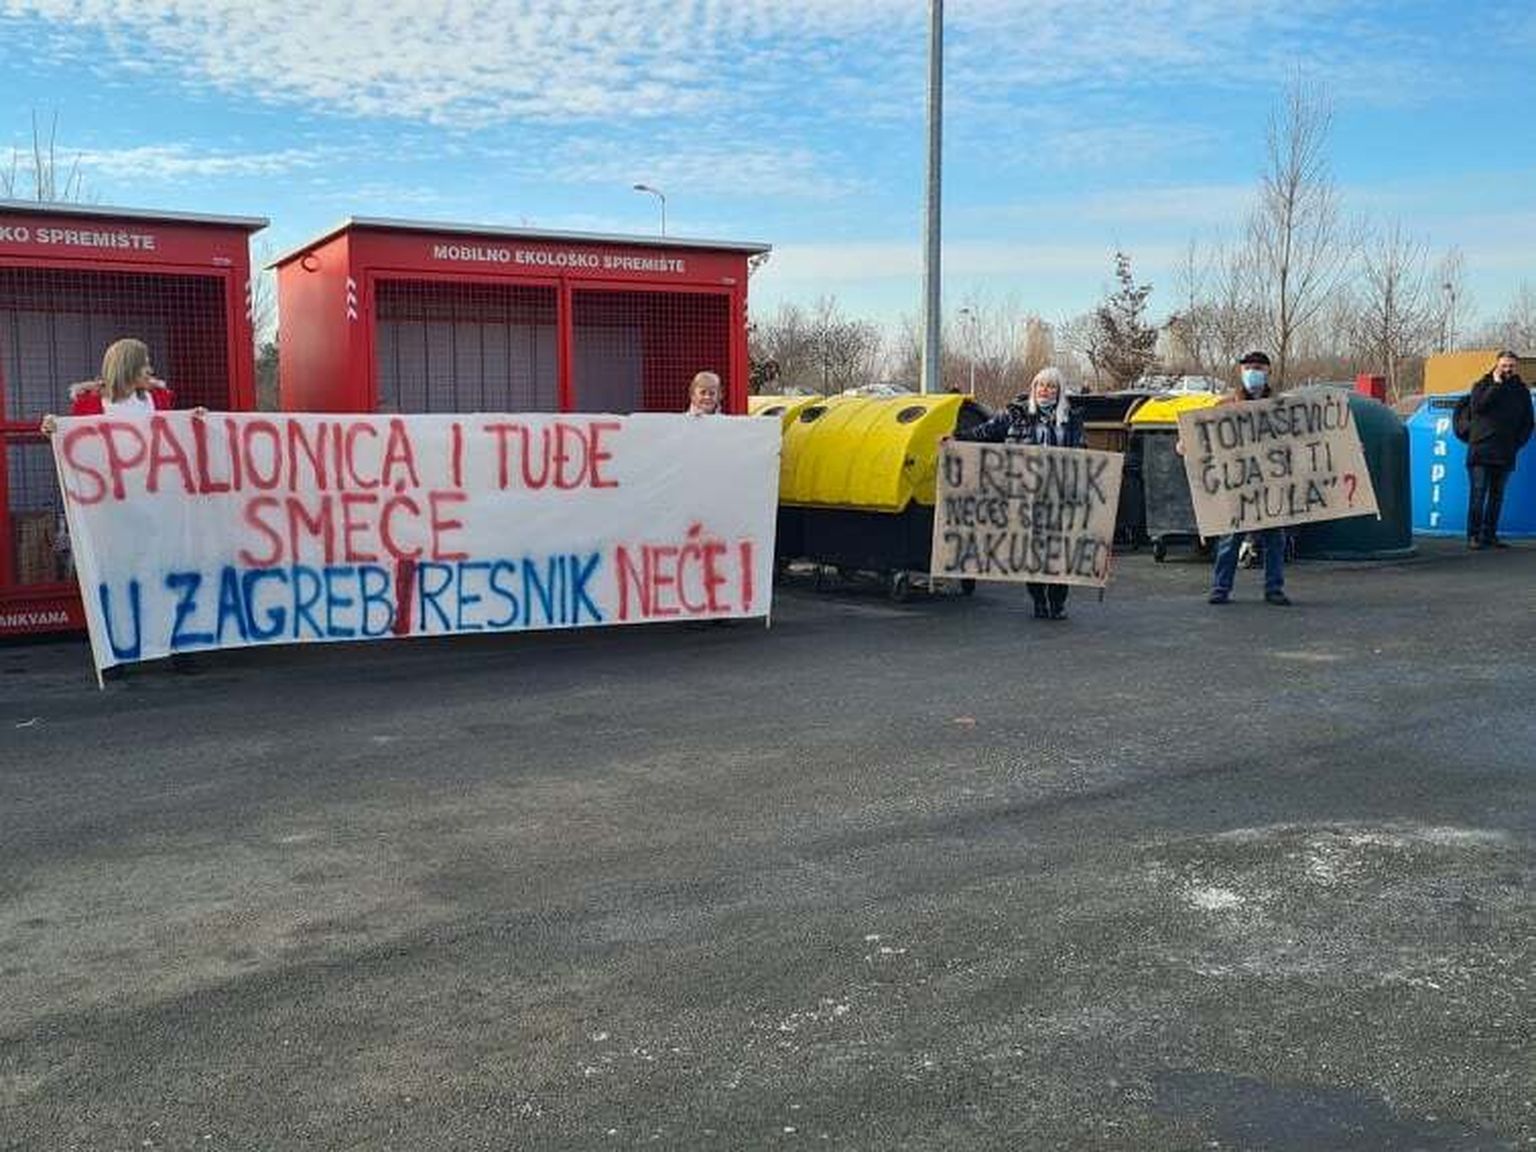 KO SPREMIŠTE
MOBILNO EKOLOŠKO SPREMIŠTE
ANKVANA
SPALIONICA I TUĐE
SMEĆE
U ZAGREB/RESNIK NEĆE!
U RESNIK
NEĆEŠ SELITI
JAKUŠEVEC!
TOMAŠEVIĆU
ČIJA SI TI
„MULA"?
papir